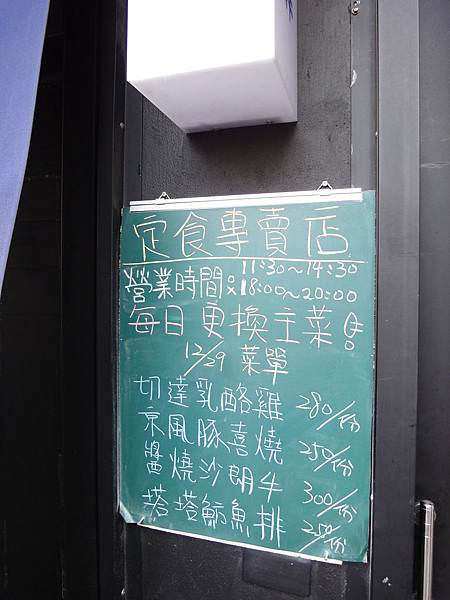 定食專賣店
營業時間：11:30～14:30
18:00～20:00
每日更換主菜哦!
12/29 菜單
切達乳酪雞 280/份
京風豚喜燒 250/份
醬燒沙朗牛 300/份
塔塔鯛魚排 250/份